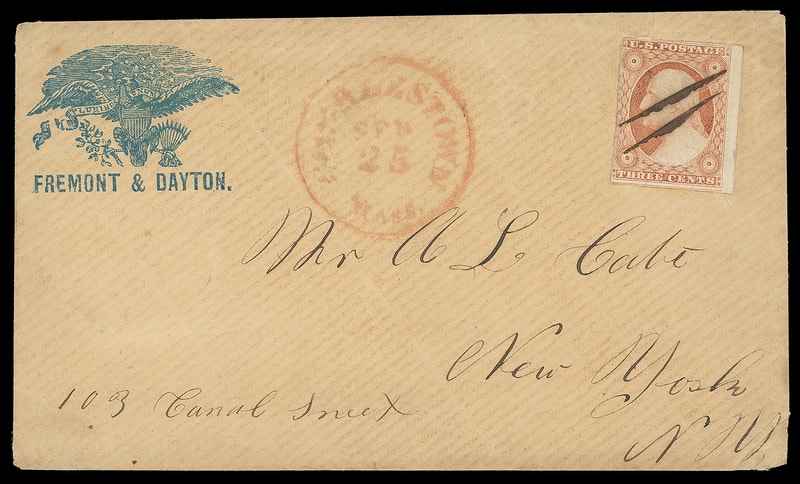 E PLURIBUS UNUM
FREMONT & DAYTON.
CHARLESTOWN
SEP
25
MASS.
U.S. POSTAGE
THREE CENTS
Mr A L Cate
New York
N Y
103 Canal Street